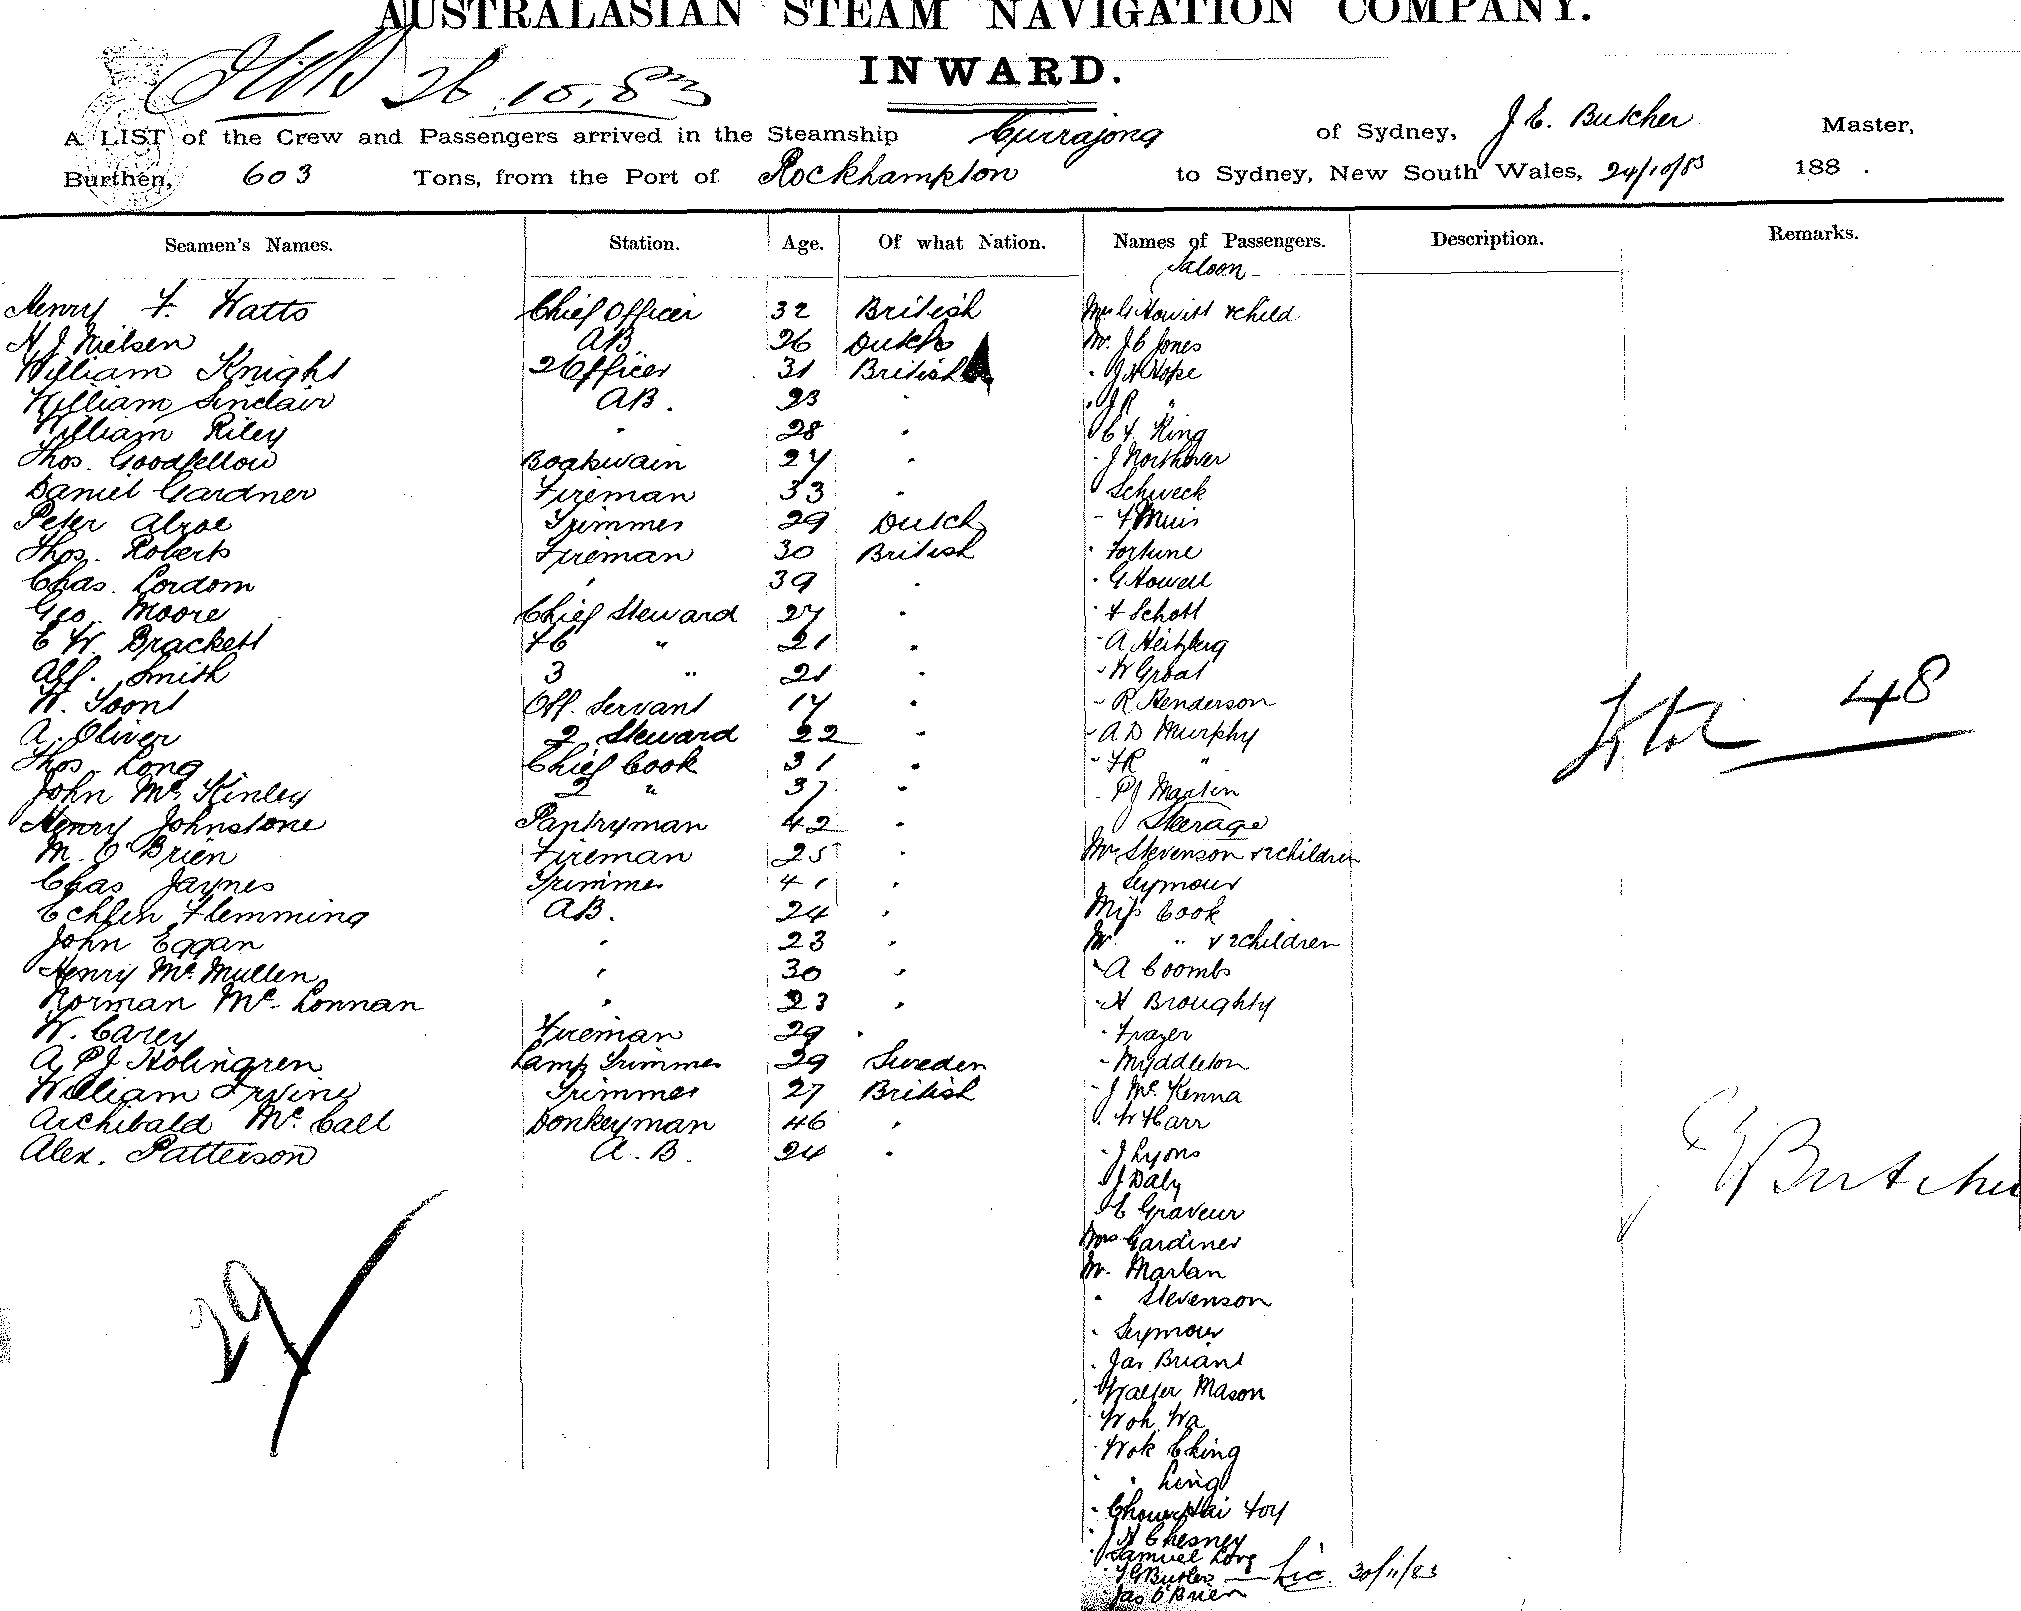 AUSTRALASIAN STEAM NAVIGATION COMPANY.
INWARD.
26.10.83
A LIST of the Crew and Passengers arrived in the Steamship Currajong of Sydney, J E. Butcher Master,
Burthen, 603 Tons, from the Port of Rockhampton to Sydney, New South Wales, 24/10/83 188 .
Seamen's Names. Station. Age. Of what Nation. Names of Passengers. Description. Remarks.
Saloon
Henry F. Watts Chief Officer 32 British Mrs G Howitt & child
H J Nielsen AB 26 Dutch Mr. J C Jones
William Knight 2 Officer 31 British " J H Hope
William Sinclair AB. 23 " " J R "
William Riley " 28 " " C F. King
Thos. Goodfellow Boatswain 27 " " J Northover
Daniel Gardner Fireman 33 " Schweck
Peter Alroe Trimmer 29 Dutch " F Muir
Thos. Roberts Fireman 30 British " Fortune
Chas. Lordom " 39 " " G Howell
Geo. Moore Chief Steward 27 " " F Schott
C W. Brackett FC " 21 " " A Heitzberg
Alf. Smith 3 " 21 " " W Groat
W. Toont Off. Servant 17 " " R Henderson
A. Oliver 2 Steward 22 " " A D Murphy
Thos Long Chief Cook 31 " " F R "
John Mc Kinley 2 " 37 " " P J Martin
Henry Johnstone Pantryman 42 " Steerage
M. O'Brien Fireman 25 " Mrs Stevenson & 2 children
Chas Jaynes Trimmer 41 " " Seymour
Echlin Flemming AB. 24 " Miss Cook
John Eggan " 23 " Mr " & 2 children
Henry Mc Mullen " 30 " " A Coombs
Norman Mc Lonnan " 23 " " H Broughty
W. Carey Fireman 29 " " Frazer
A P J Holingren Lamp Trimmer 29 Sweden " Myddleton
William Irvine Trimmer 27 British " J Mc Kenna
Archibald Mc Call Donkeyman 46 " " W Harr
Alex. Patterson A. B. 24 " " J Lyons
" J Daly
" C Graveur
Mrs Gardiner
Mr. Martan
" Stevenson
" Seymour
" Jas Briant
" Walter Mason
" Woh Wa
" Wok Ching
" " Ling
" Hai Foy
" J H Chesney
" Samuel Long
" T G Butler
" Jas O'Brien
Total 48
J E Butcher
29
30/11/83